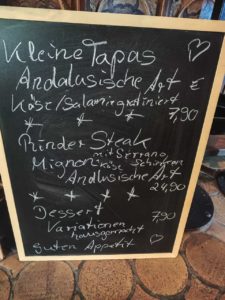 Kleine Tapas
Andalusische Art €
Käse/Salami gratiniert
7,90
Rinder Steak
Mignon mit Serrano
Käse Schinken
Andalusische Art
24,90
Dessert 7,90
Variationen
hausgemacht
Guten Appetit